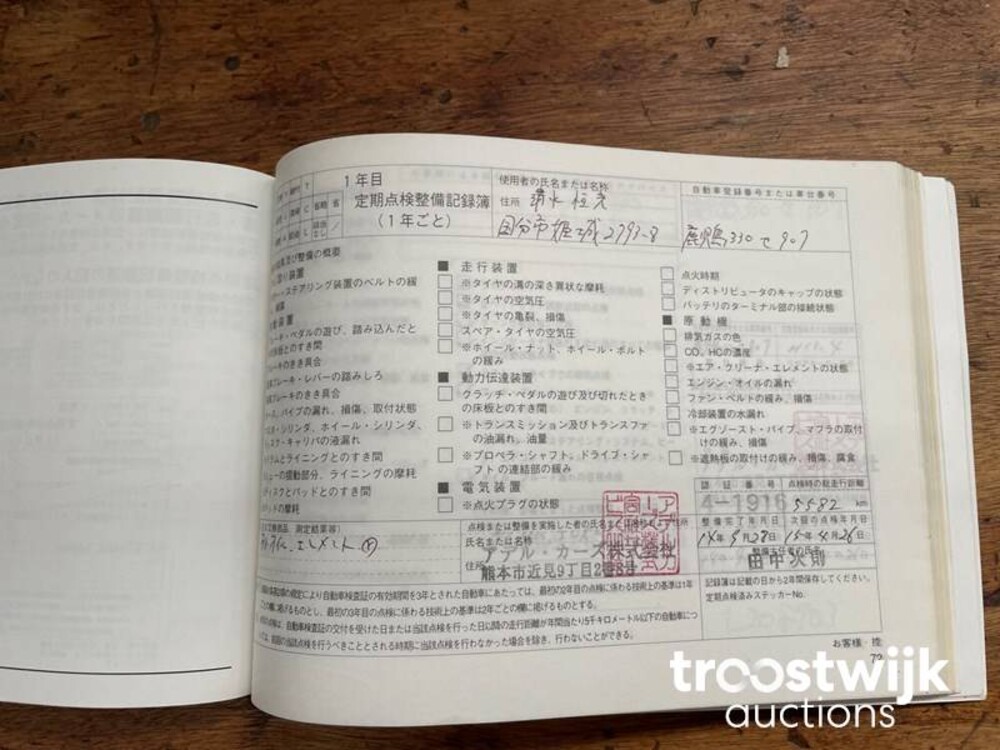 1年目
定期点検整備記録簿
(1年ごと)
使用者の氏名または名称
住所
国分市姫城2793-8
自動車登録番号または車台番号
鹿児島330 て 907
及び整備の概要
装置
ステアリング装置のベルトの緩
装置
ーキ・ペダルの遊び、踏み込んだと
床板とのすき間
ーキのきき具合
ブレーキ・レバーの踏みしろ
ーキのきき具合
ース、パイプの漏れ、損傷、取付状態
・シリンダ、ホイール・シリンダ、
スク・キャリパの液漏れ
ムとライニングとのすき間
ューの摺動部分、ライニングの摩耗
ディスクとパッドとのすき間
ッドの摩耗
■ 走行装置
※タイヤの溝の深さ異状な摩耗
※タイヤの空気圧
※タイヤの亀裂、損傷
スペア・タイヤの空気圧
※ホイール・ナット、ホイール・ボルト
の緩み
■ 動力伝達装置
クラッチ・ペダルの遊び及び切れたとき
の床板とのすき間
※トランスミッション及びトランスファ
の油漏れ、油量
※プロペラ・シャフト、ドライブ・シャ
フトの連結部の緩み
■ 電気装置
※点火プラグの状態
点火時期
ディストリビュータのキャップの状態
バッテリのターミナル部の接続状態
■ 原動機
排気ガスの色
CO、HCの濃度
※エア・クリーナ・エレメントの状態
エンジン・オイルの漏れ
ファン・ベルトの緩み、損傷
冷却装置の水漏れ
※エグゾースト・パイプ、マフラの取付
けの緩み、損傷
※遮熱板の取付けの緩み、損傷、腐食
認証番号
点検時の総走行距離
4-1916
5582 km
整備完了年月日
次回の点検年月日
14年5月28日
15年4月26日
整備主任者の氏名
田中次則
測定結果等)
エレメント
点検または整備を実施した者の氏名または名称・住所
氏名または名称
アデル・カーズ株式会社
住所
熊本市近見9丁目2番8号
記録簿は記載の日から2年間保存してください。
定期点検済みステッカーNo.
規定により自動車検査証の有効期間を3年とされた自動車にあたっては、最初の2年目の点検に係わる技術上の基準は1年
の欄に掲げるものとし、最初の3年目の点検に係わる技術上の基準は2年ごとの欄に掲げるものとする。
は、自動車検査証の交付を受けた日または当該点検を行った日以降の走行距離が年間当たり5千キロメートル以下の自動車につ
前回の当該点検を行うべきこととされる時期に当該点検を行わなかった場合を除き、行わないことができる。
お客様・控
troostwijk
auctions